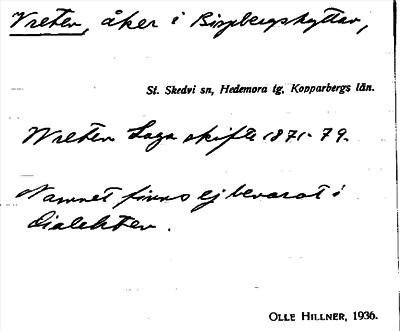 Vreten, åker i Bispbergshyttan,
St. Skedvi sn, Hedemora tg, Kopparbergs län.
Wreten Laga skifte 1871-79.
Namnet finns ej bevarat i
dialekten.
OLLE HILLNER, 1936.